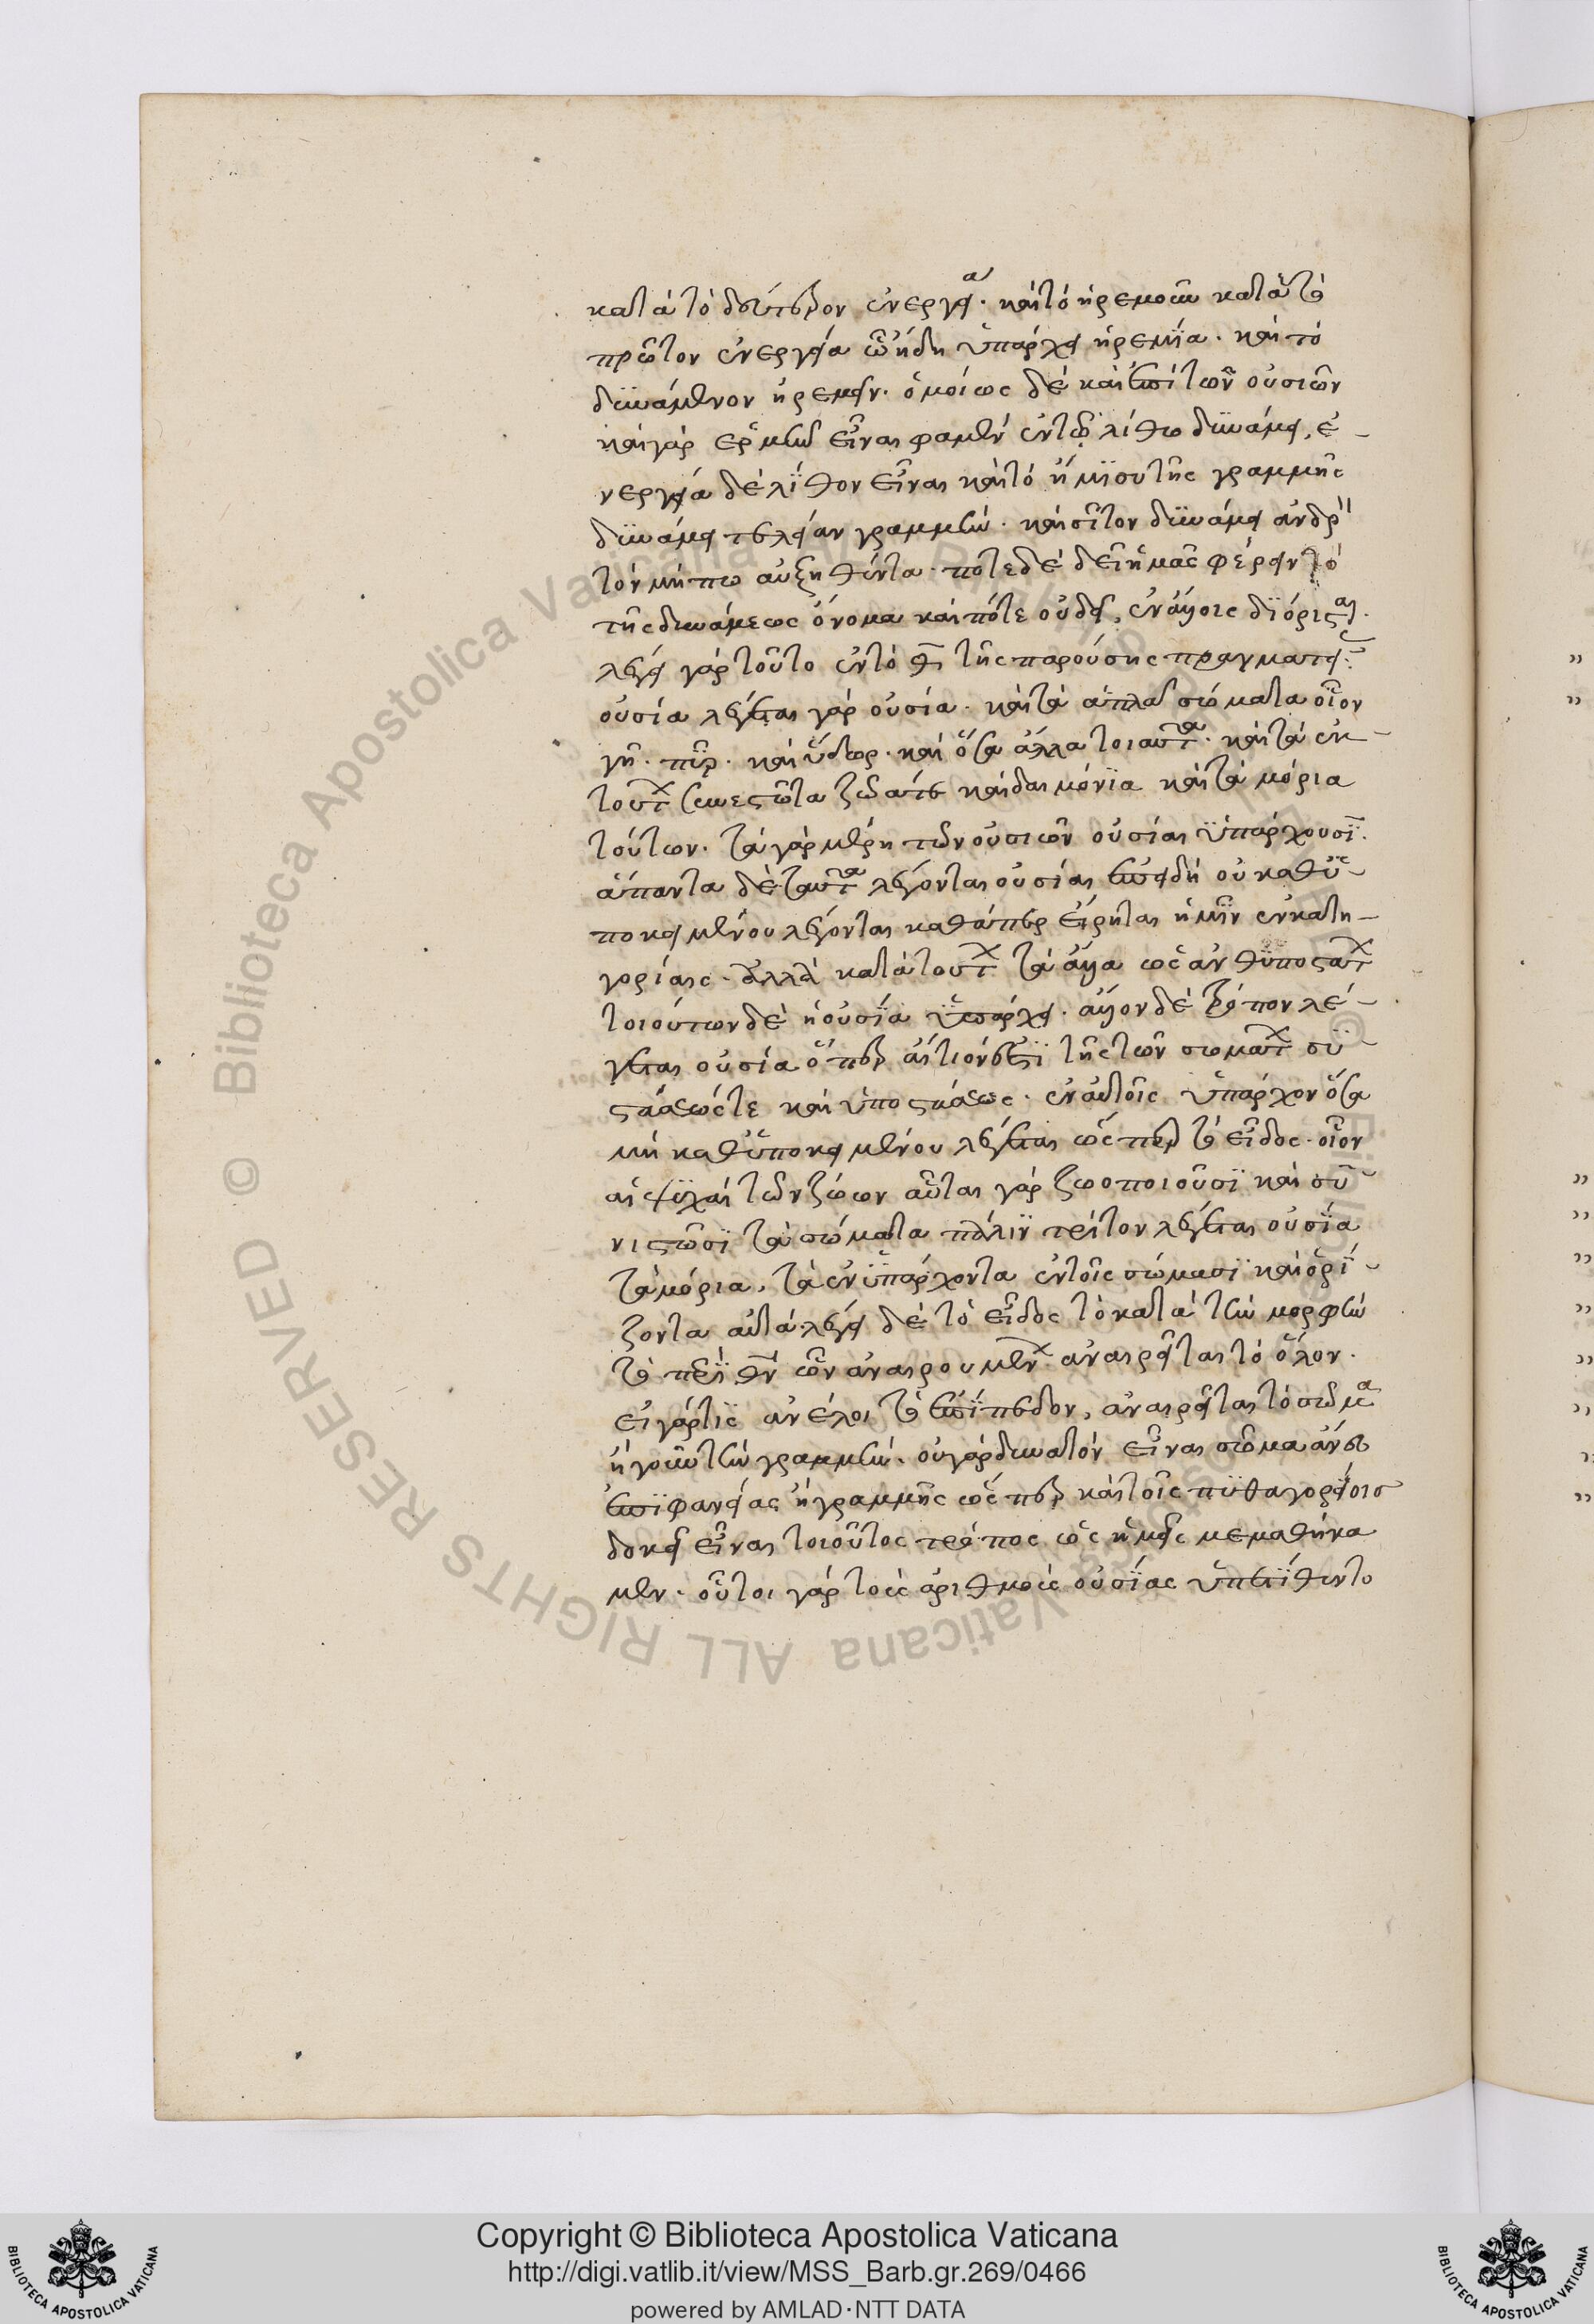 κατὰ τὸ δεύτερον ἐνεργεία. καὶ τὸ ἠρεμοῦν κατὰ τὸ
πρῶτον ἐνεργεία ᾧ ἤδη ὑπάρχει ἠρεμία. καὶ τὸ
δυνάμενον ἠρεμεῖν. ὁμοίως δὲ καὶ ἐπὶ τῶν οὐσιῶν
καὶ γὰρ ἑρμῆν εἶναι φαμὲν ἐν τῷ λίθω δυνάμει, ἐ-
νεργεία δὲ λίθον εἶναι καὶ τὸ ἥμισυ τῆς γραμμῆς
δυνάμει τελείαν γραμμήν. καὶ σῖτον δυνάμει ἁνδρὶ
τὸν μήπω αὐξηθέντα. πότε δὲ δεῖ ἡμᾶς φέρειν τὸ
τῆς δυνάμεως ὄνομα καὶ πότε οὐδεὶ, ἐν ἄλλοις διόρισται.
λέγει γὰρ τοῦτο ἐν τὸ θῆ τῆς παρούσης πραγματείας
οὐσία λέγεται γὰρ οὐσία. καὶ τὰ ἁπλᾶ σώματα οἷον
γῆ. πῦρ. καὶ ὕδωρ. καὶ ὅσα ἄλλα τοιαῦτα. καὶ τὰ ἐκ
τούτων συνεστῶτα ζῶα τε καὶ δαιμόνια καὶ τὰ μόρια
τούτων. τὰ γὰρ μέρη τῶν οὐσιῶν οὐσίαι ὑπάρχουσι.
ἅπαντα δὲ ταῦτα λέγονται οὐσίαι ἐπειδὴ οὐ καθ' ὑ-
ποκειμένου λέγονται καθάπερ εἴρηται ἡμῖν ἐν κατη-
γορίαις. ἀλλὰ κατὰ τούτων τὰ ἄλλα ὡς ἀνθυποστάτων
τοιούτων δὲ ἡ οὐσία ὑπάρχει. ἄλλον δὲ τρόπον λέ-
γεται οὐσία ὅπερ αἴτιόν ἐστι τῆς τῶν σωμάτων συ-
στάσεώς τε καὶ ὑποστάσεως. ἐν αὐτοῖς ὑπάρχον ὅσα
μὴ καθ' ὑποκειμένου λέγεται ὥσπερ τὸ εἶδος. οἷον
αἱ ψυχαὶ τῶν ζώων αὗται γὰρ ζωοποιοῦσι καὶ συ-
νιστῶσι τὰ σώματα πάλιν τρίτον λέγεται οὐσία
τὰ μόρια, τὰ ἐνυπάρχοντα ἐν τοῖς σώμασι καὶ ὁρί-
ζοντα αὐτὰ. λέγει δὲ τὸ εἶδος τὸ κατὰ τὴν μορφὴν
ὧν ἀναιρουμένων ἀναιρεῖται τὸ ὅλον.
εἰ γάρ τις ἀνέλοι τὸ ἐπίπεδον, ἀναιρεῖται τὸ σῶμα
ἤγουν τὴν γραμμήν. οὐ γὰρ δυνατὸν εἶναι σῶμα ἄνευ
ἐπιφανείας ἢ γραμμῆς ὥσπερ καὶ τοῖς πυθαγορείοις
δοκεῖ εἶναι τοιοῦτος τρόπος ὡς ἡμεῖς μεμαθήκα
μεν. οὗτοι γὰρ τοὺς ἀριθμοὺς οὐσίας ὑπετίθεντο
Copyright © Biblioteca Apostolica Vaticana
http://digi.vatlib.it/view/MSS_Barb.gr.269/0466
powered by AMLAD·NTT DATA